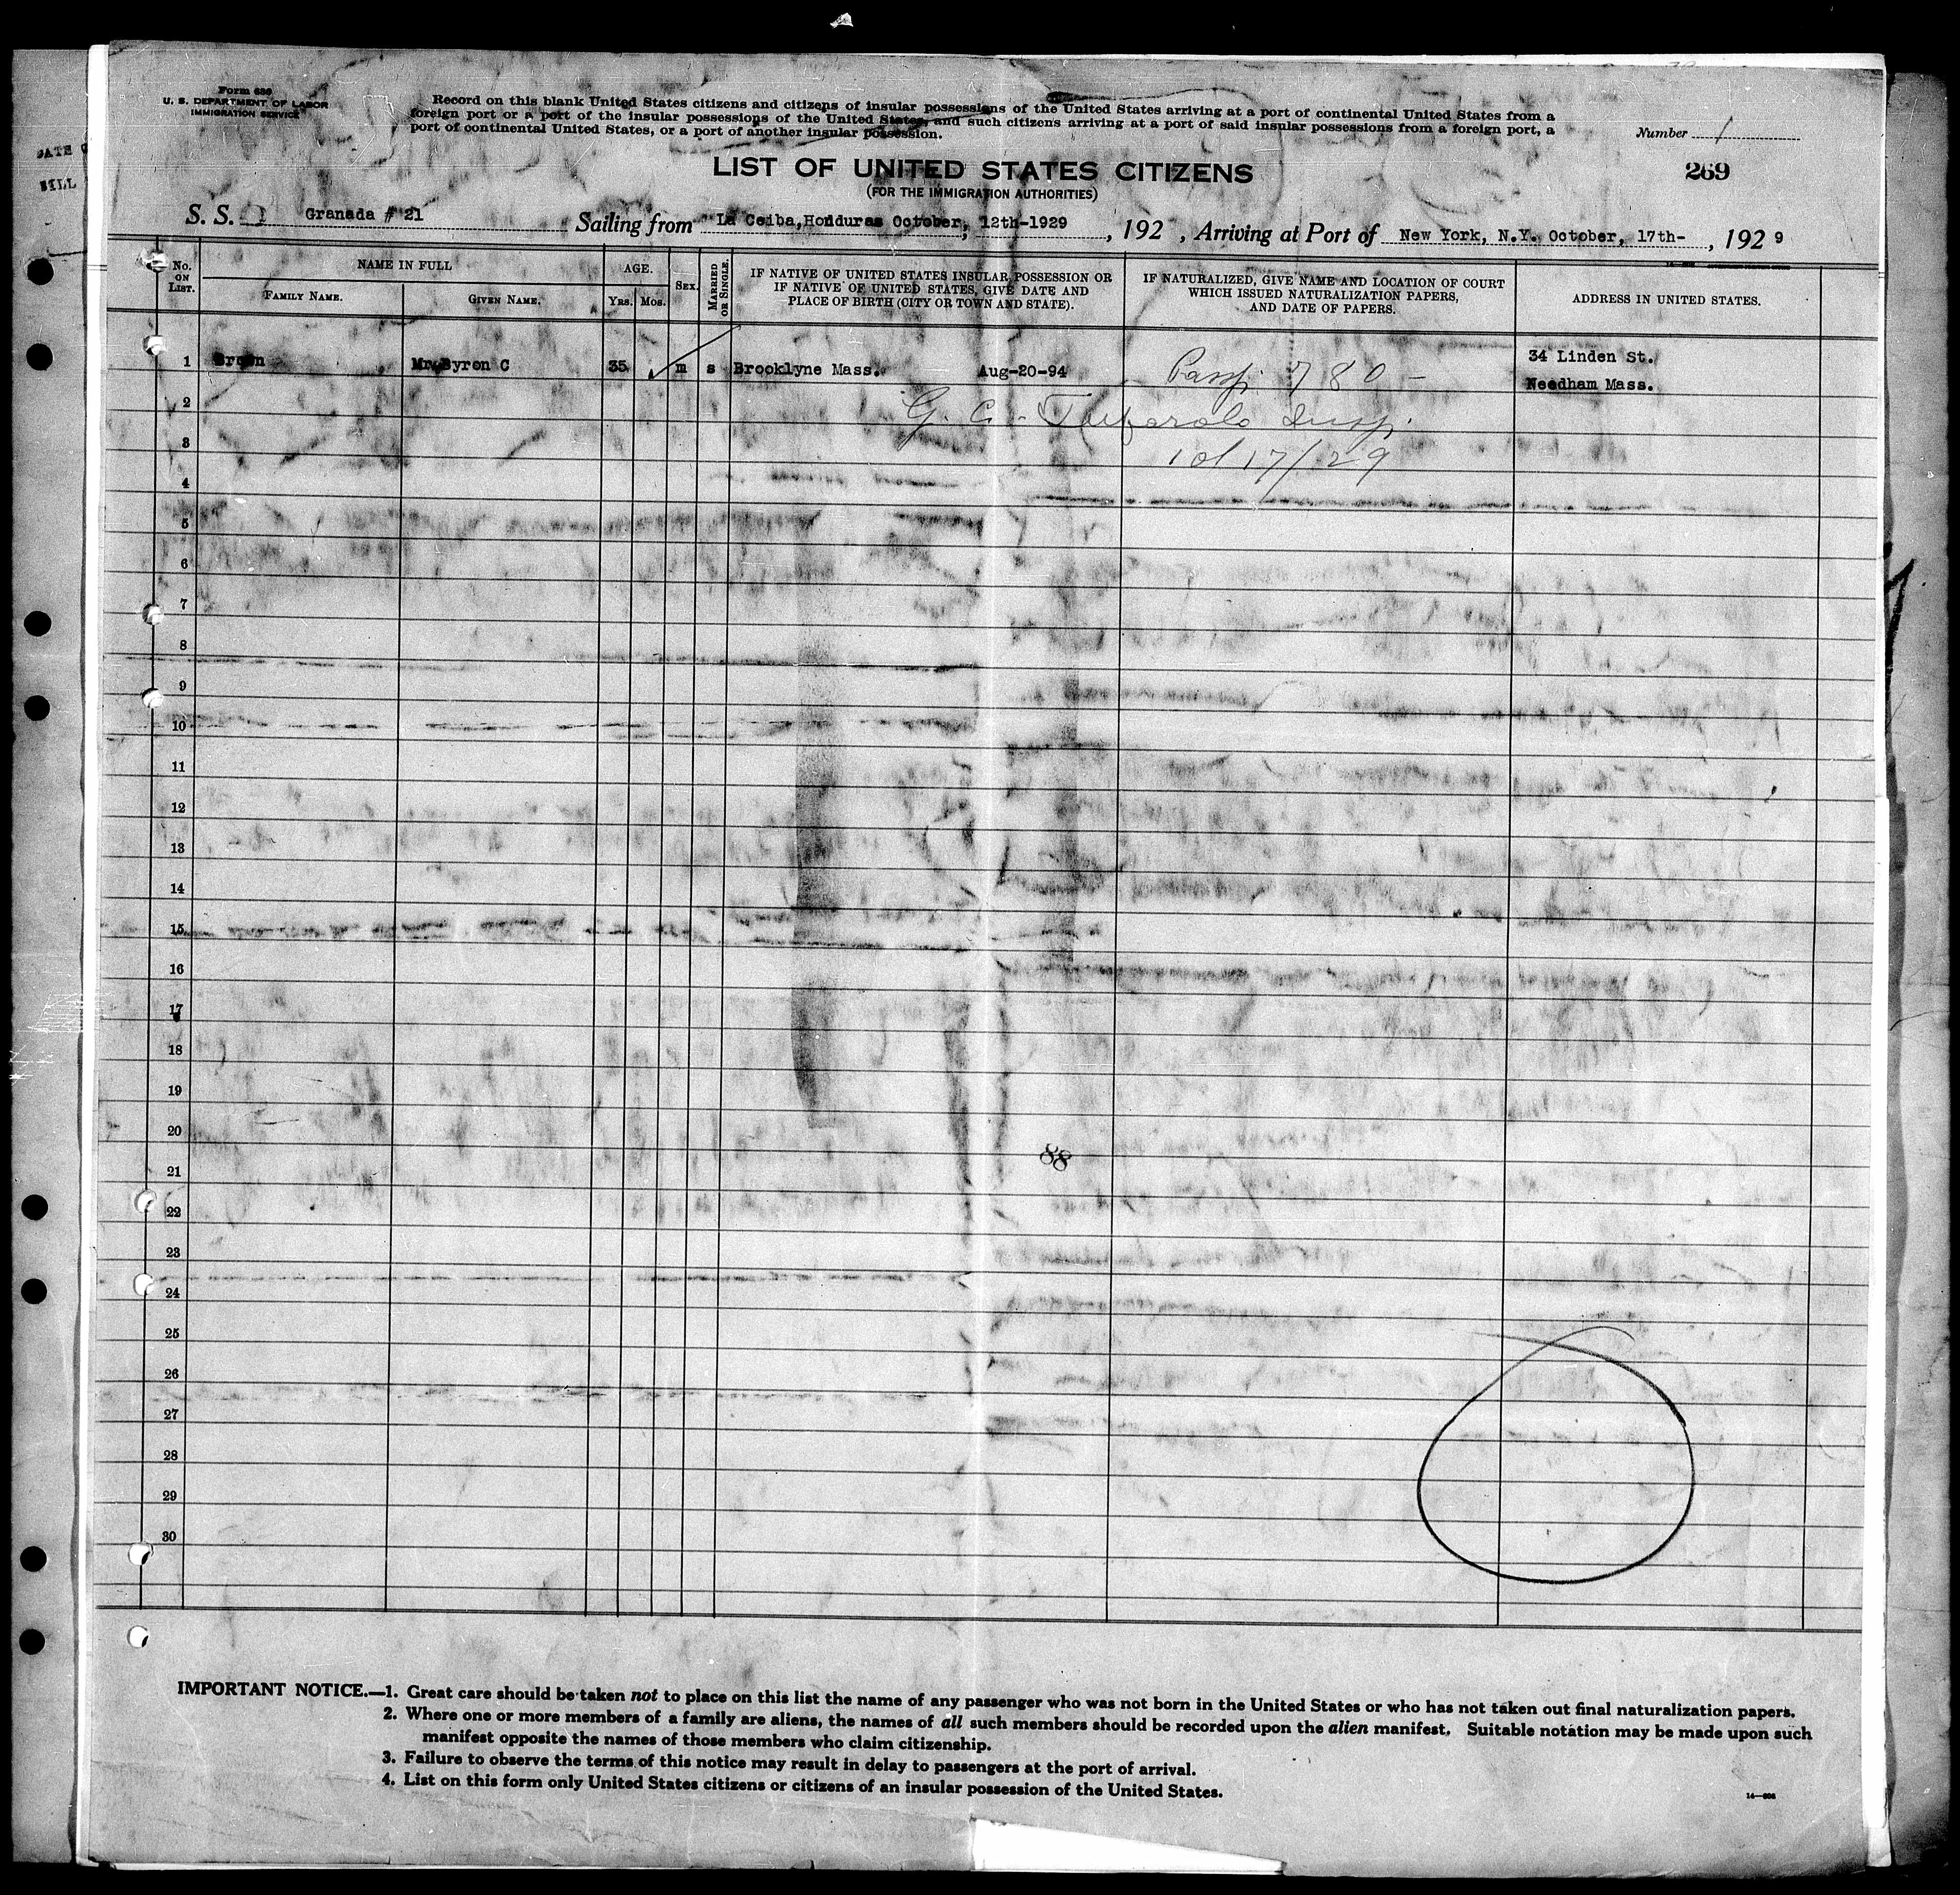 Form 630
U. S. DEPARTMENT OF LABOR
IMMIGRATION SERVICE
Record on this blank United States citizens and citizens of insular possessions of the United States arriving at a port of continental United States from a
foreign port or a port of the insular possessions of the United States, and such citizens arriving at a port of said insular possessions from a foreign port, a
port of continental United States, or a port of another insular possession.
Number 1
LIST OF UNITED STATES CITIZENS
269
(FOR THE IMMIGRATION AUTHORITIES)
S. S. Granada # 21 Sailing from La Ceiba,Honduras October, 12th-1929, 192 , Arriving at Port of New York, N.Y. October, 17th- , 192 9
No. ON LIST.
NAME IN FULL
FAMILY NAME.
GIVEN NAME.
AGE.
YRS. MOS.
SEX.
MARRIED OR SINGLE.
IF NATIVE OF UNITED STATES INSULAR POSSESSION OR
IF NATIVE OF UNITED STATES, GIVE DATE AND
PLACE OF BIRTH (CITY OR TOWN AND STATE).
IF NATURALIZED, GIVE NAME AND LOCATION OF COURT
WHICH ISSUED NATURALIZATION PAPERS,
AND DATE OF PAPERS.
ADDRESS IN UNITED STATES.
1 Mr Byron C 35 m s Brooklyne Mass. Aug-20-94 Passp. 780 - 34 Linden St.
Needham Mass.
2 G. C. Insp.
3 10/17/29
4
5
6
7
8
9
10
11
12
13
14
15
16
17
18
19
20
88
21
22
23
24
25
26
27
28
29
30
IMPORTANT NOTICE.—1. Great care should be taken not to place on this list the name of any passenger who was not born in the United States or who has not taken out final naturalization papers.
2. Where one or more members of a family are aliens, the names of all such members should be recorded upon the alien manifest. Suitable notation may be made upon such
manifest opposite the names of those members who claim citizenship.
3. Failure to observe the terms of this notice may result in delay to passengers at the port of arrival.
4. List on this form only United States citizens or citizens of an insular possession of the United States.